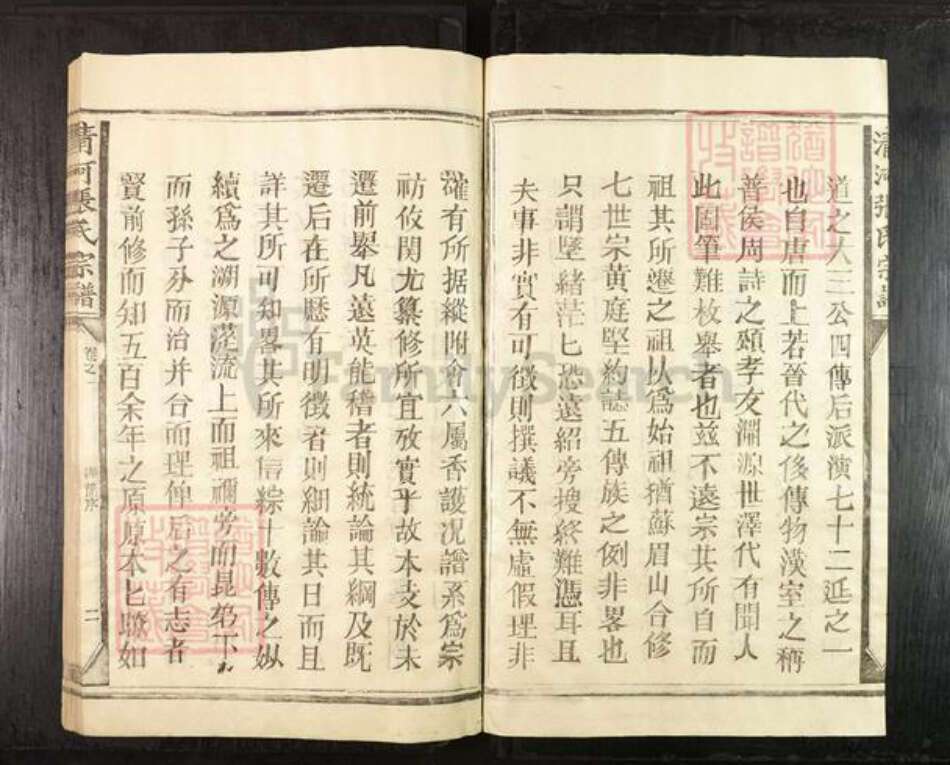 清河張氏宗譜
道之人三公四傳后派演七十二延之一
也自唐而上若晉代之俊傳物漢室之稱
普侯周詩之頌孝友淵源世澤代有聞人
此固筆難枚舉者也兹不遠宗其所自而
祖其所遷之祖以爲始祖猶蘇眉山合修
七世宗黃庭堅約誌五傳族之例非畧也
只謂墜緒茫匕恐遠紹旁搜終難憑耳且
夫事非實有可徵則撰議不無虛假理非
確有所据縱附會亦屬香謢况譜系爲宗
祊攸関尤纂修所宜攷實乎故本支於未
遷前舉凡遠莫能稽者則統論其綱及既
遷后在所歷有明徵者則細論其目而且
詳其所可知畧其所來信綜十數傳之
續爲之溯源涇流上而祖禰旁而昆弟下
而孫子分而治并合而理俾后之有志者
賢前修而知五百余年之原原本匕瞭如
清河張氏宗譜
卷之一
二
FamilySearch